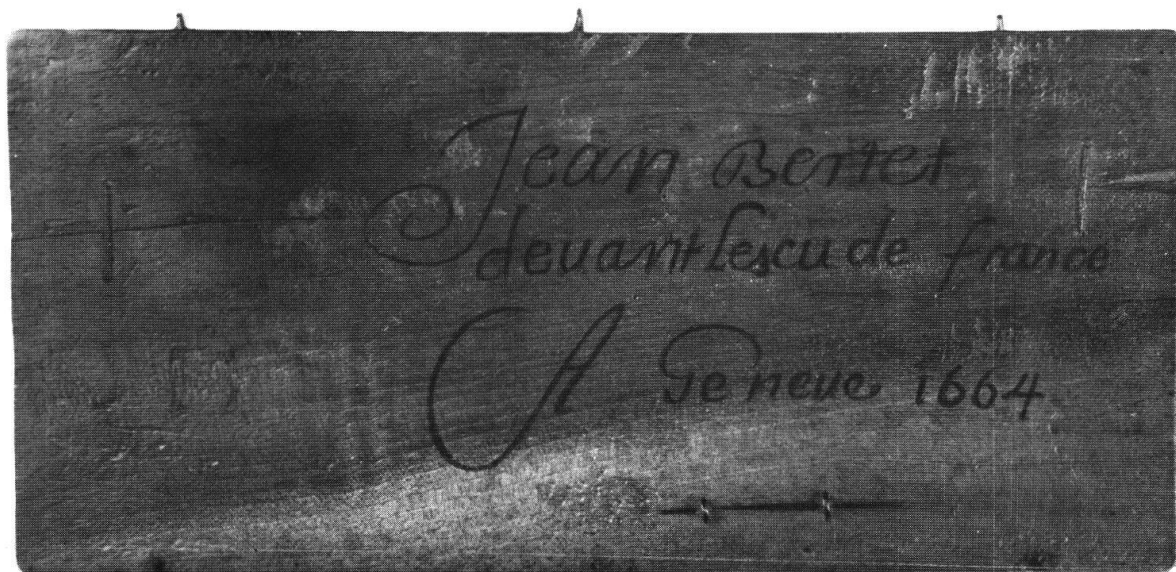 Jean Bertet
deuant Lescu de france
A Geneue 1664